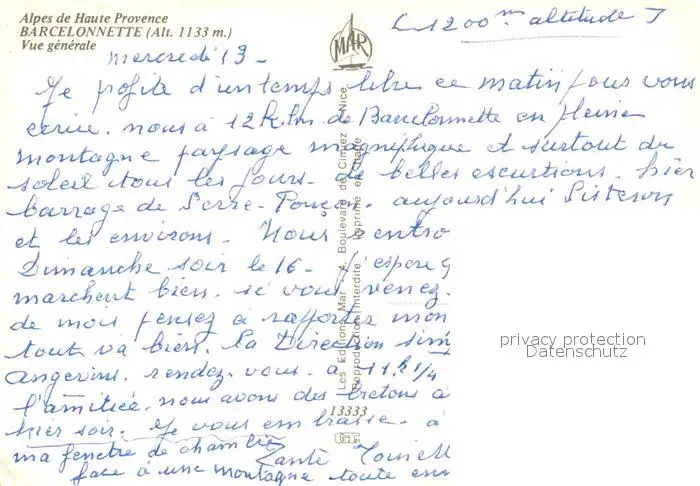 Alpes de Haute Provence
BARCELONNETTE (Alt. 1133 m.)
Vue générale
1200m altitude
MAR
mercredi 13 -
Je profite d'un temps libre ce matin pour vous
écrire. nous à 12 k.m de Barcelonnette en pleine
montagne paysage magnifique et surtout du
soleil tous les jours. de belles escurtions. hier
barrage de Serre-Ponçon. aujourd'hui Sisteron
et les environs. Nous rentro
Dimanche soir le 16 - J'espere q
marchent bien. si vous venez.
de mois pensez à rapporter mon
tout va bien. la Direction sim
Angevins. rendez-vous. à 11h 1/4
l'amitiée. nous avons des bretons à
hier soir. Je vous embrasse. à
ma fenetre de chambre
Tante
face à une montagne toute
Les Editions Mar - 4, Boulevard de Cimiez - Nice
Reproduction Interdite Imprimé en
13333
privacy protection
Datenschutz